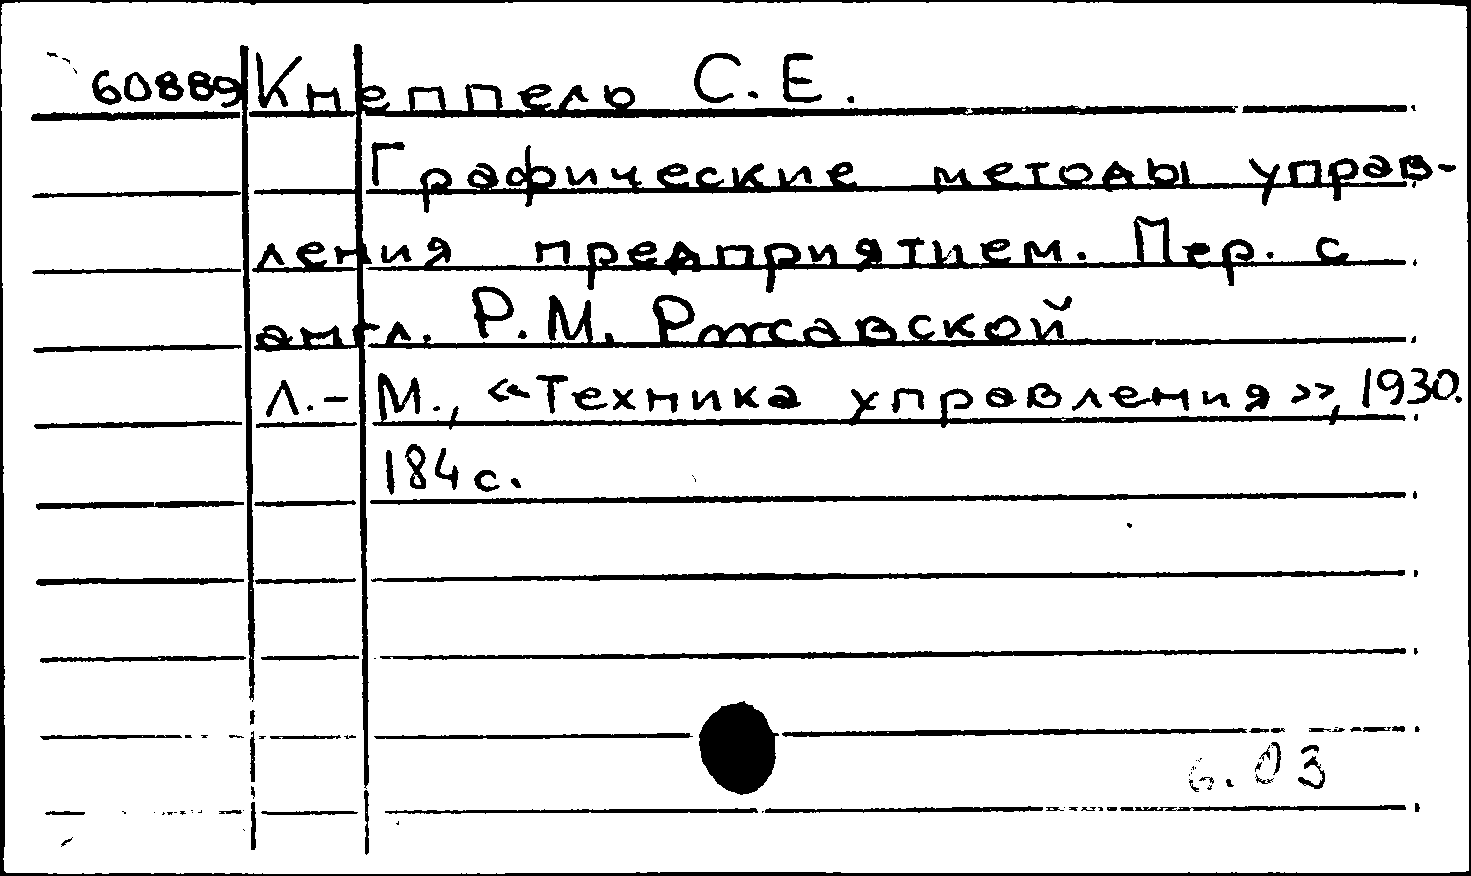 60889 Кнеппель С.Е.
Графические методы управ-
ления предприятием. Пер. с
англ. Р.М. Ржсавской
Л.-М., «Техника управления», 1930.
184 с.
6.03